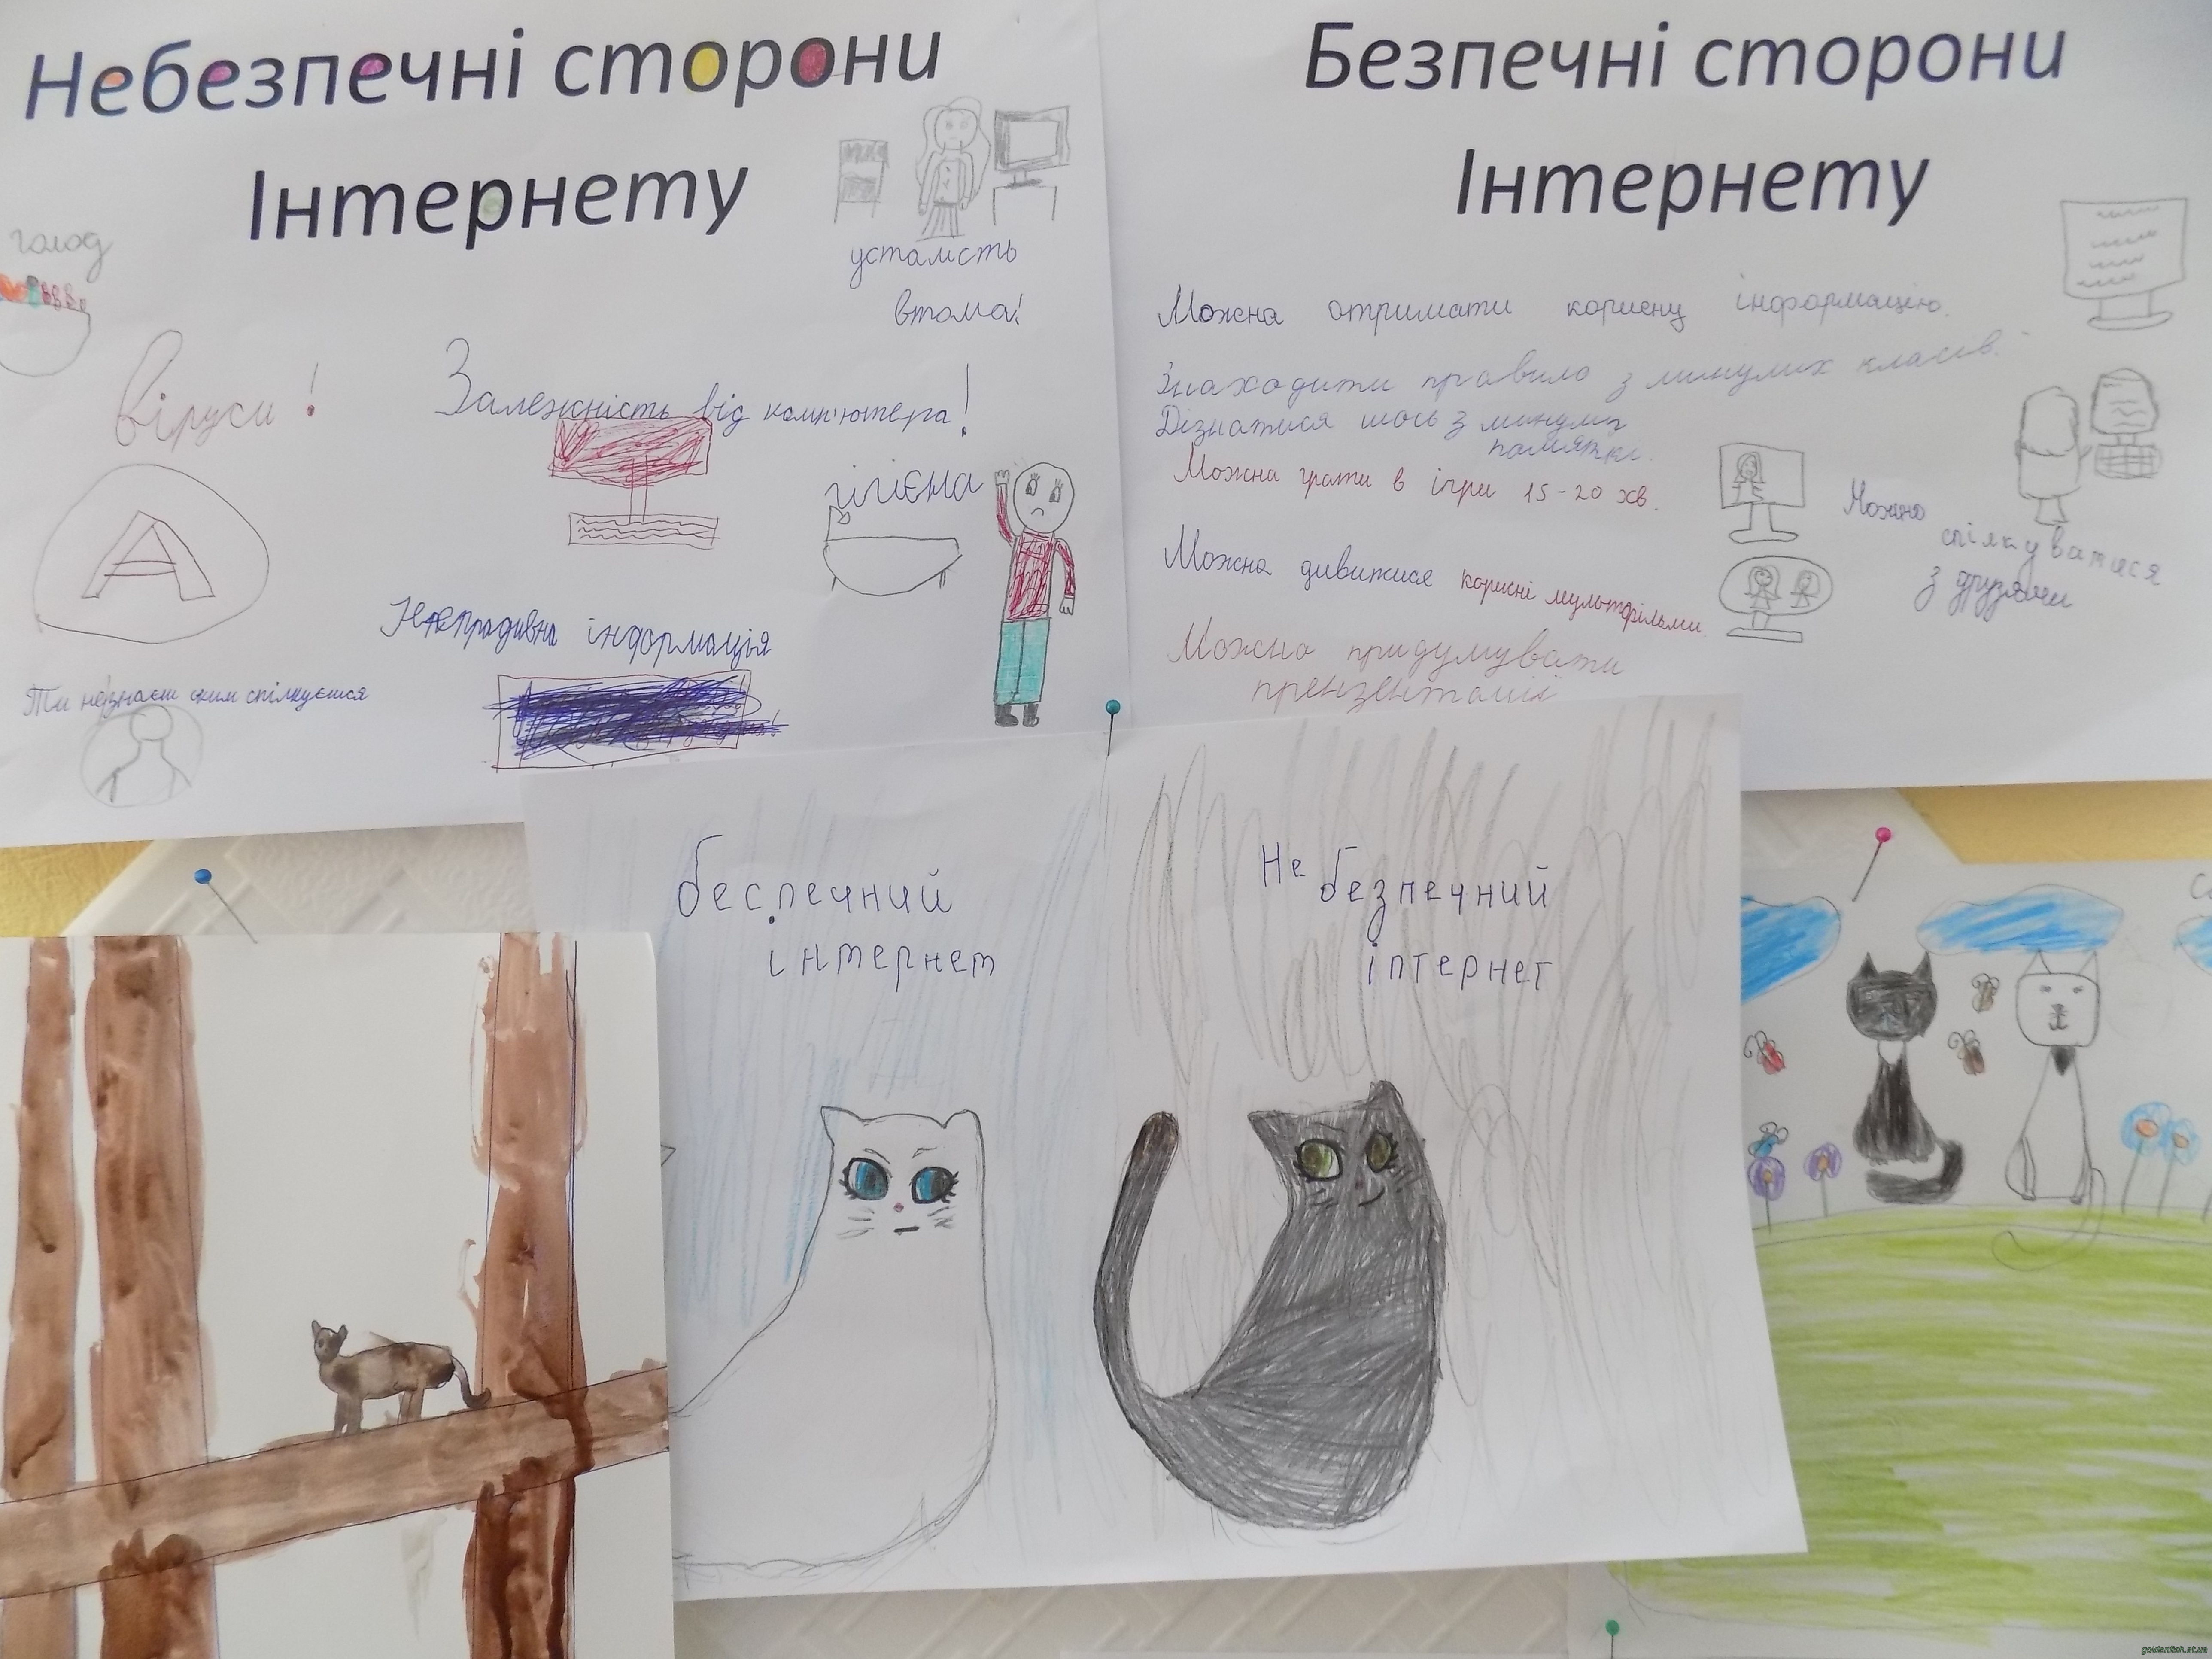 Небезпечні сторони
Інтернету
голод
усталість
втома!
Віруси!
Залежність від комп'ютера!
гігієна
А
Неправдивна інформація
Ти незнаєш ским спілкуєшся
Безпечні сторони
Інтернету
Можна отримати корисну інформацію.
Знаходити правило з минулих класів.
Дізнатися щось з минулих
памятки.
Можна грати в ігри 15-20 хв.
Можна дивитися корисні мультфільми.
Можна придумувати
Можна
спілкуватися
з друзями
беспечний
інтернет
Не безпечний
інтернет
goldenfish.at.ua